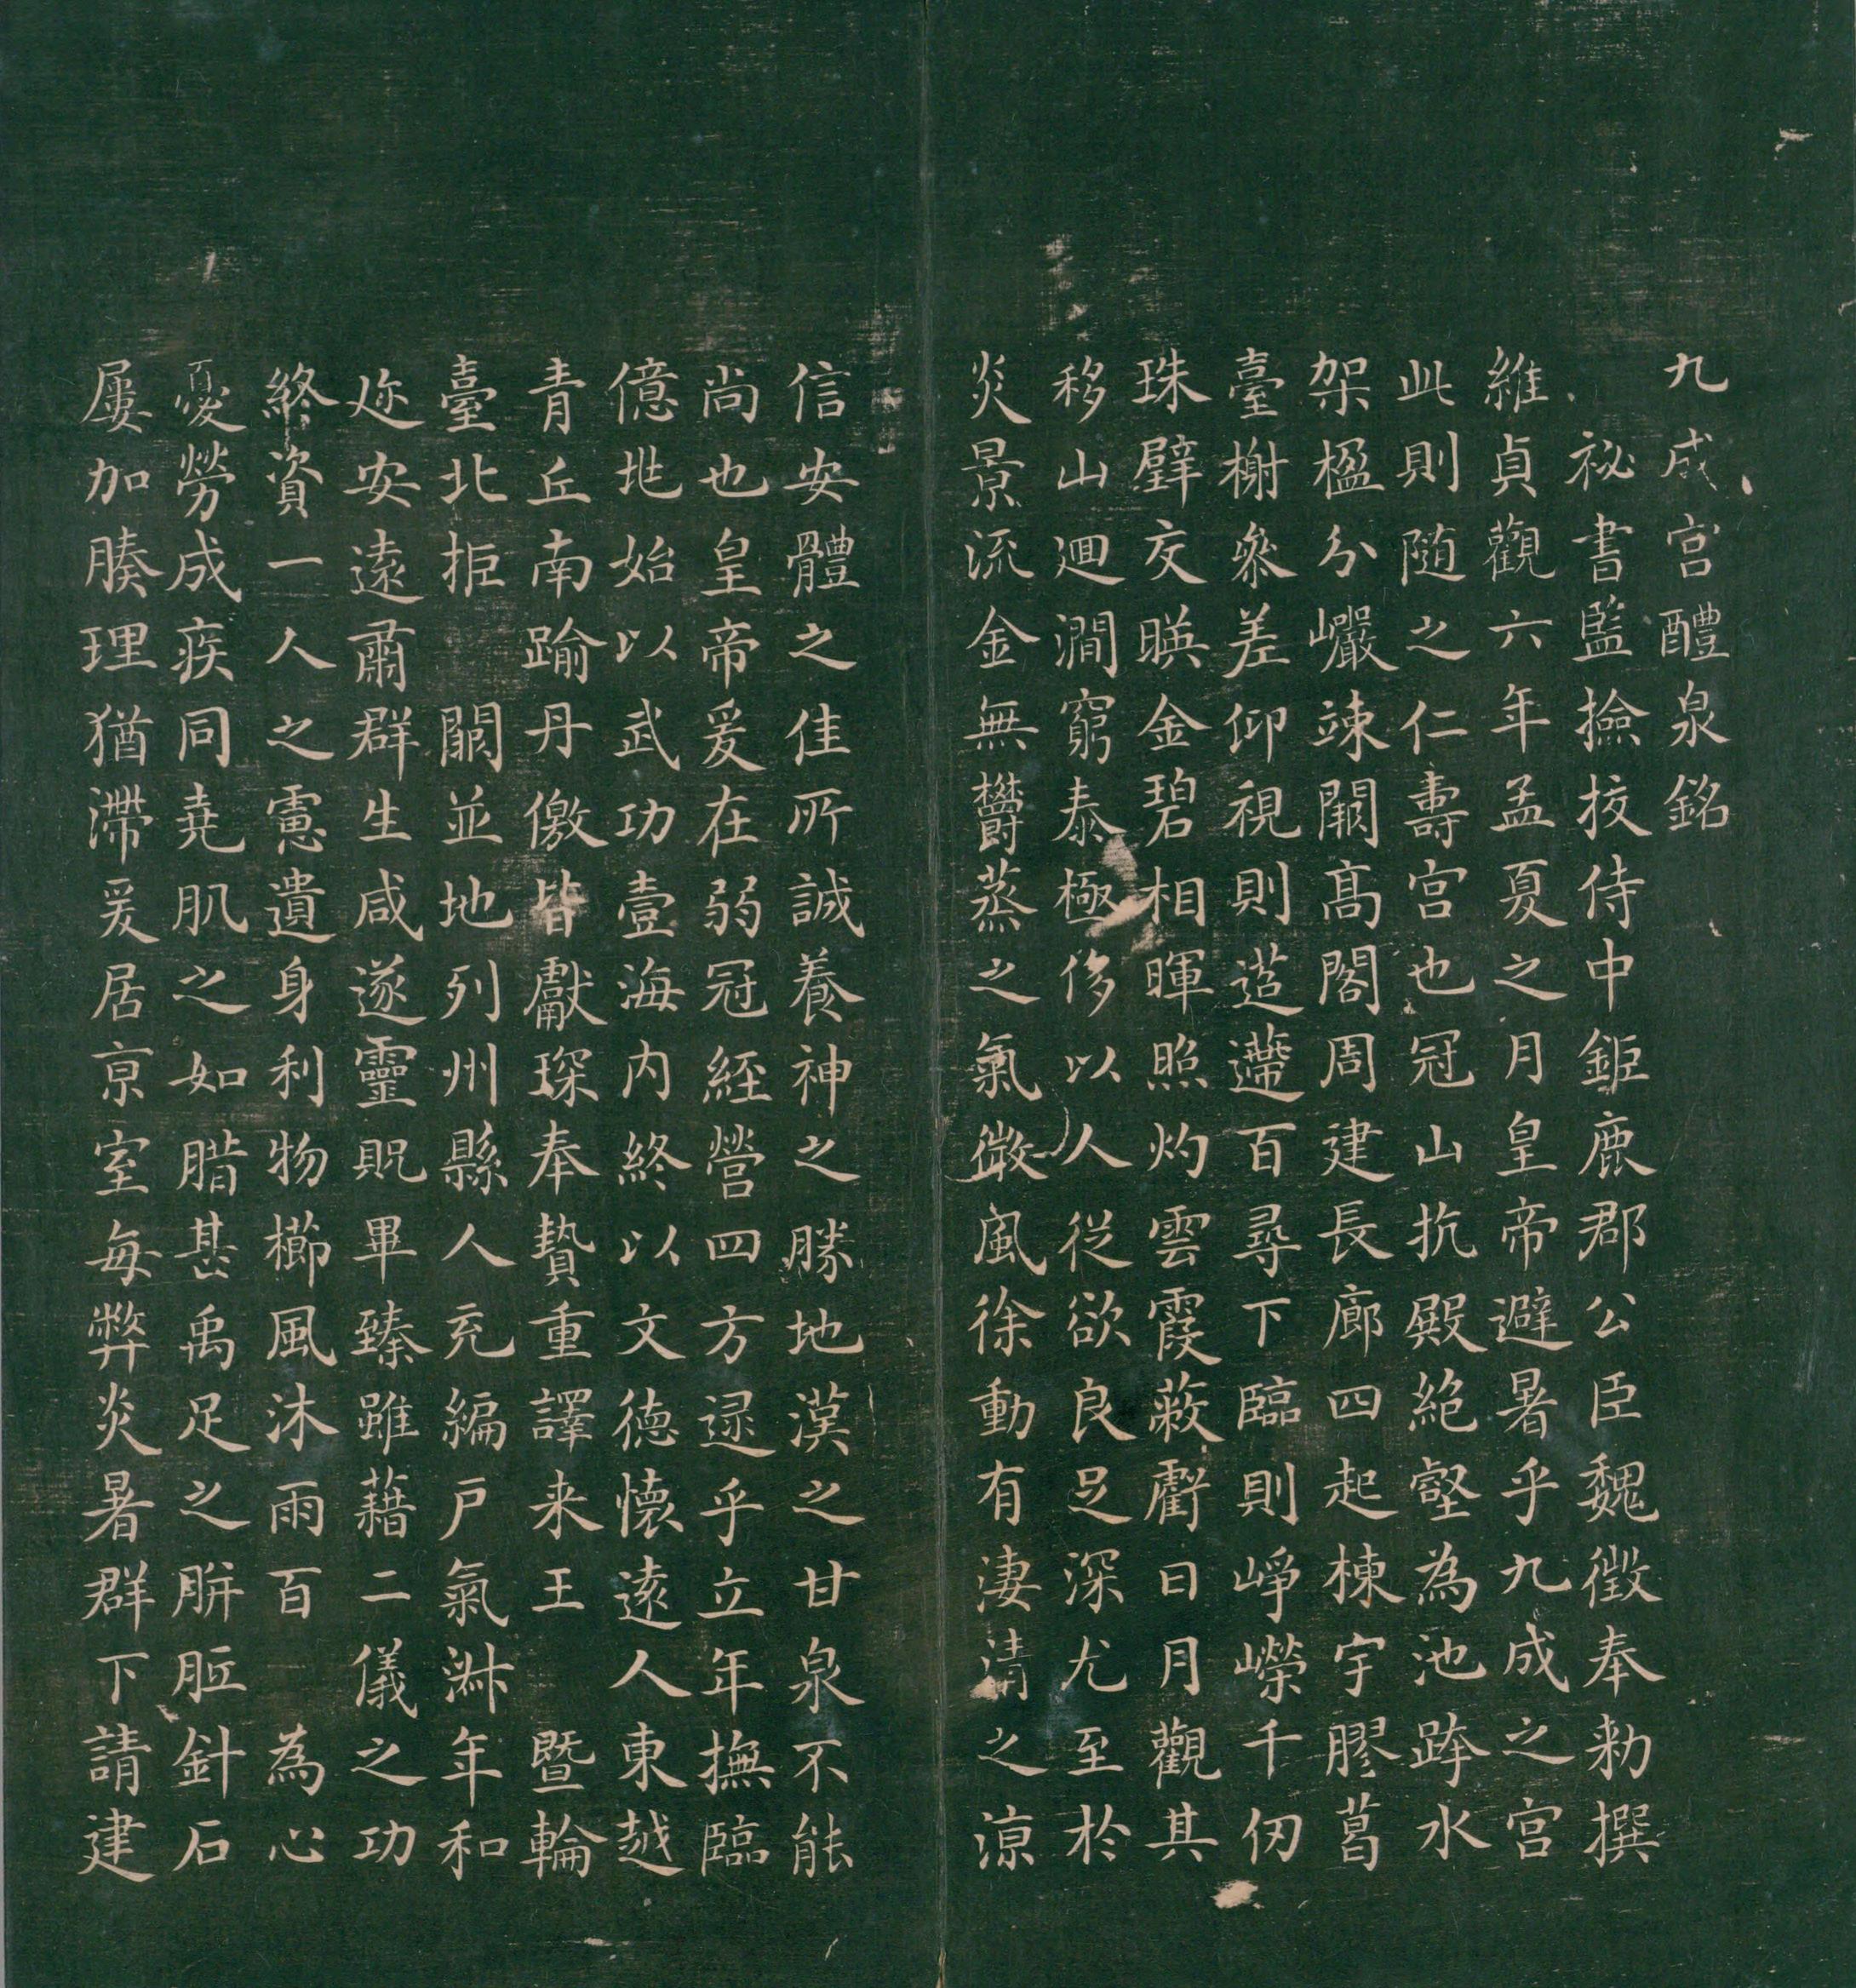 九成宮醴泉銘
祕書監撿挍侍中鉅鹿郡公臣魏徵奉勑撰
維貞觀六年孟夏之月皇帝避暑乎九成之宮
此則隨之仁壽宮也冠山抗殿絶壑為池跨水
架楹分巖竦闕高閣周建長廊四起棟宇膠葛
臺榭參差仰視則迢遰百尋下臨則崢嶸千仞
珠璧交暎金碧相暉照灼雲霞蔽虧日月觀其
移山迴澗窮泰極侈以人從欲良足深尤至於
炎景流金無欝蒸之氣微風徐動有淒清之涼
信安體之佳所誠養神之勝地漢之甘泉不能
尚也皇帝爰在弱冠經營四方逮乎立年撫臨
億兆始以武功壹海內終以文德懷遠人東越
青丘南踰丹儌皆獻琛奉贄重譯来王暨輪
臺北拒闕並地列州縣人充編戶氣淋年和
迩安遠肅群生咸遂靈貺畢臻雖藉二儀之功
終資一人之慮遺身利物櫛風沐雨百為心
憂勞成疾同堯肌之如腊甚禹足之胼胝針石
屢加腠理猶滯爰居京室每弊炎暑群下請建